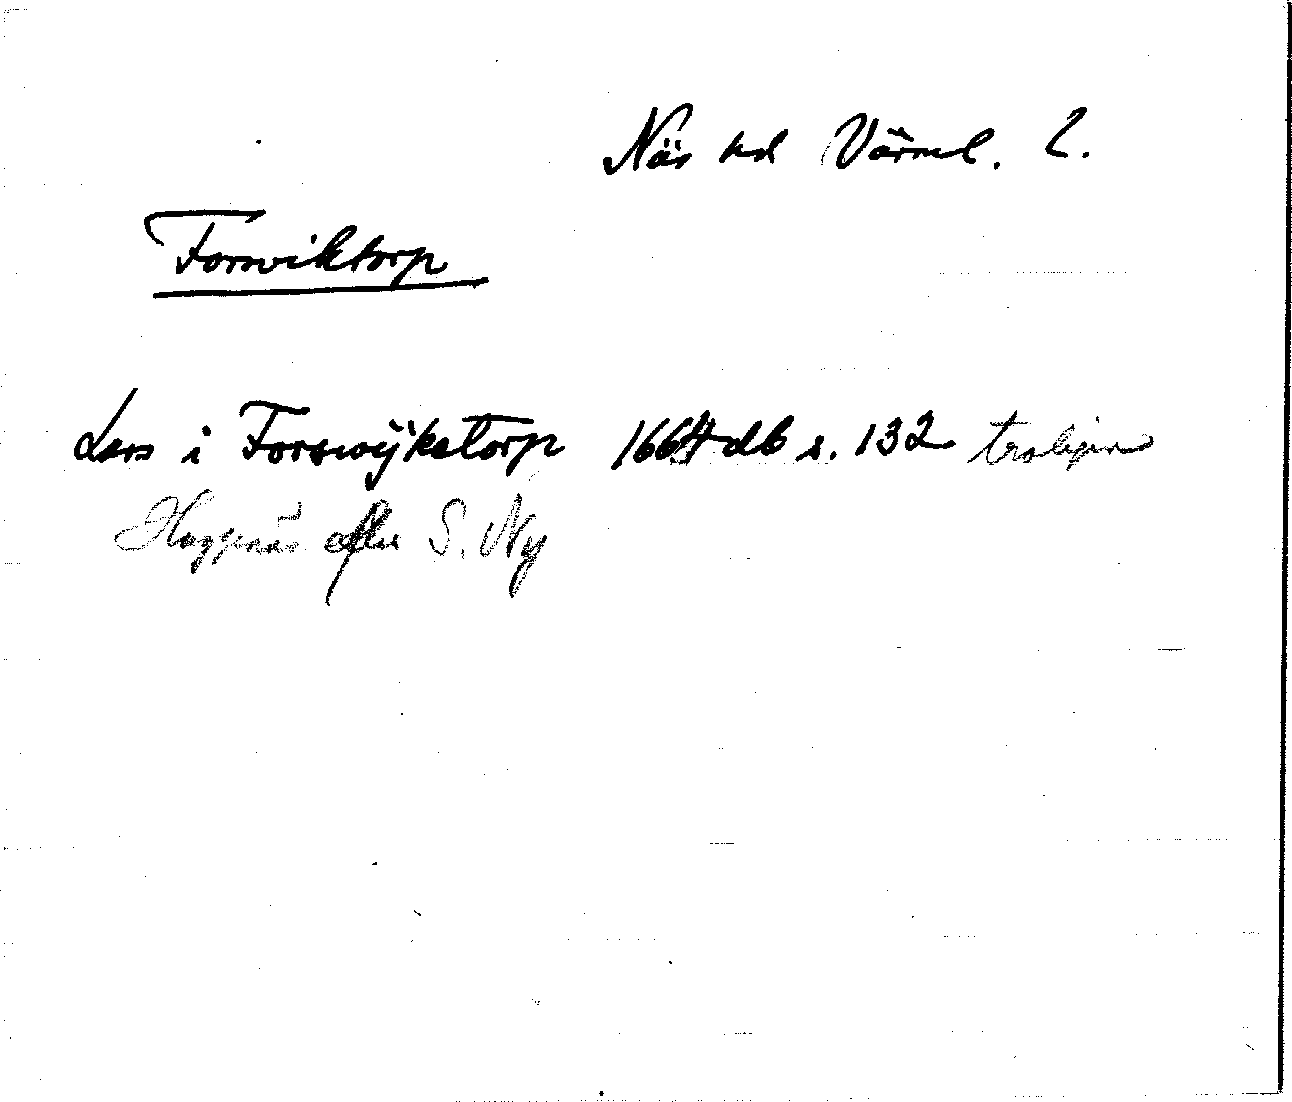 Näs hd Värml. L.
Forsviktorp
Lars i Forswÿketorp 1664 db s. 132 troligen
Huggenäs eller S. Ny